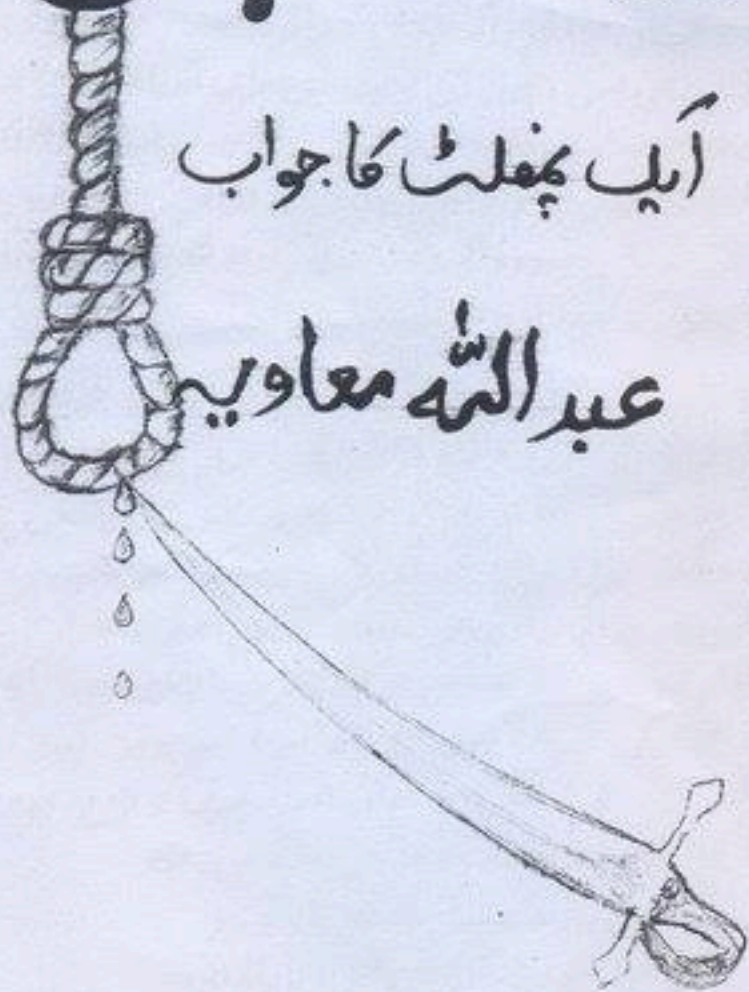 ایک پمفلٹ کا جواب
عبد اللہ معاویہ